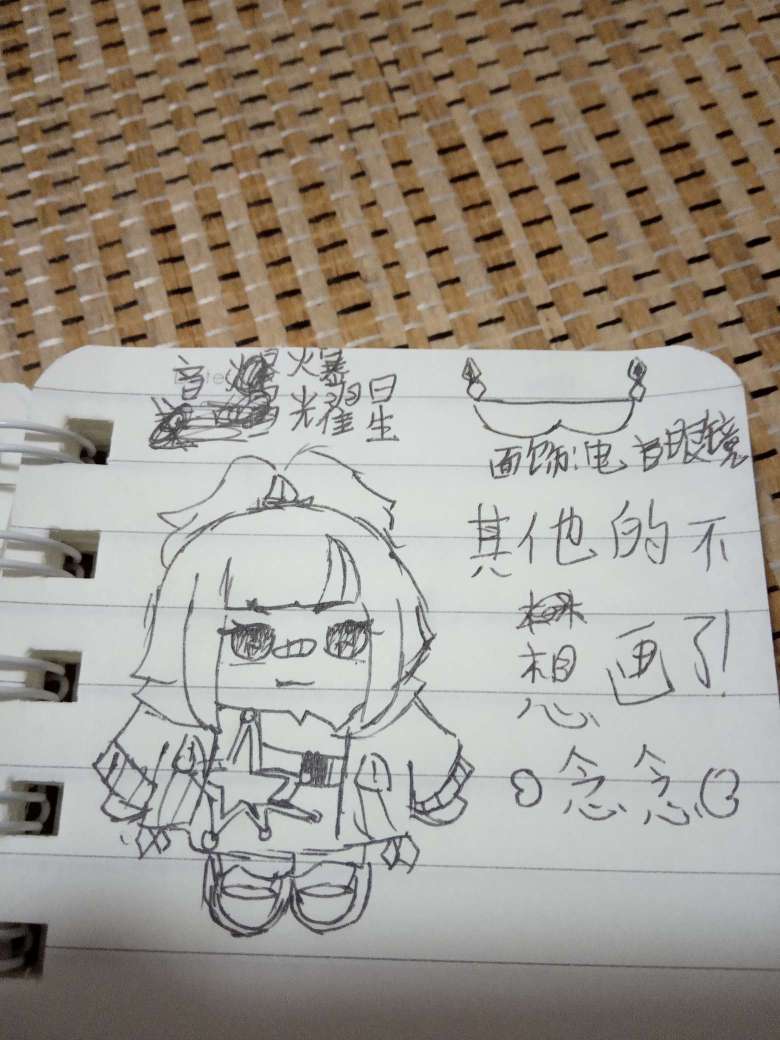 音爆
光耀星
面饰:电音眼镜
其他的不
想画了!
念念